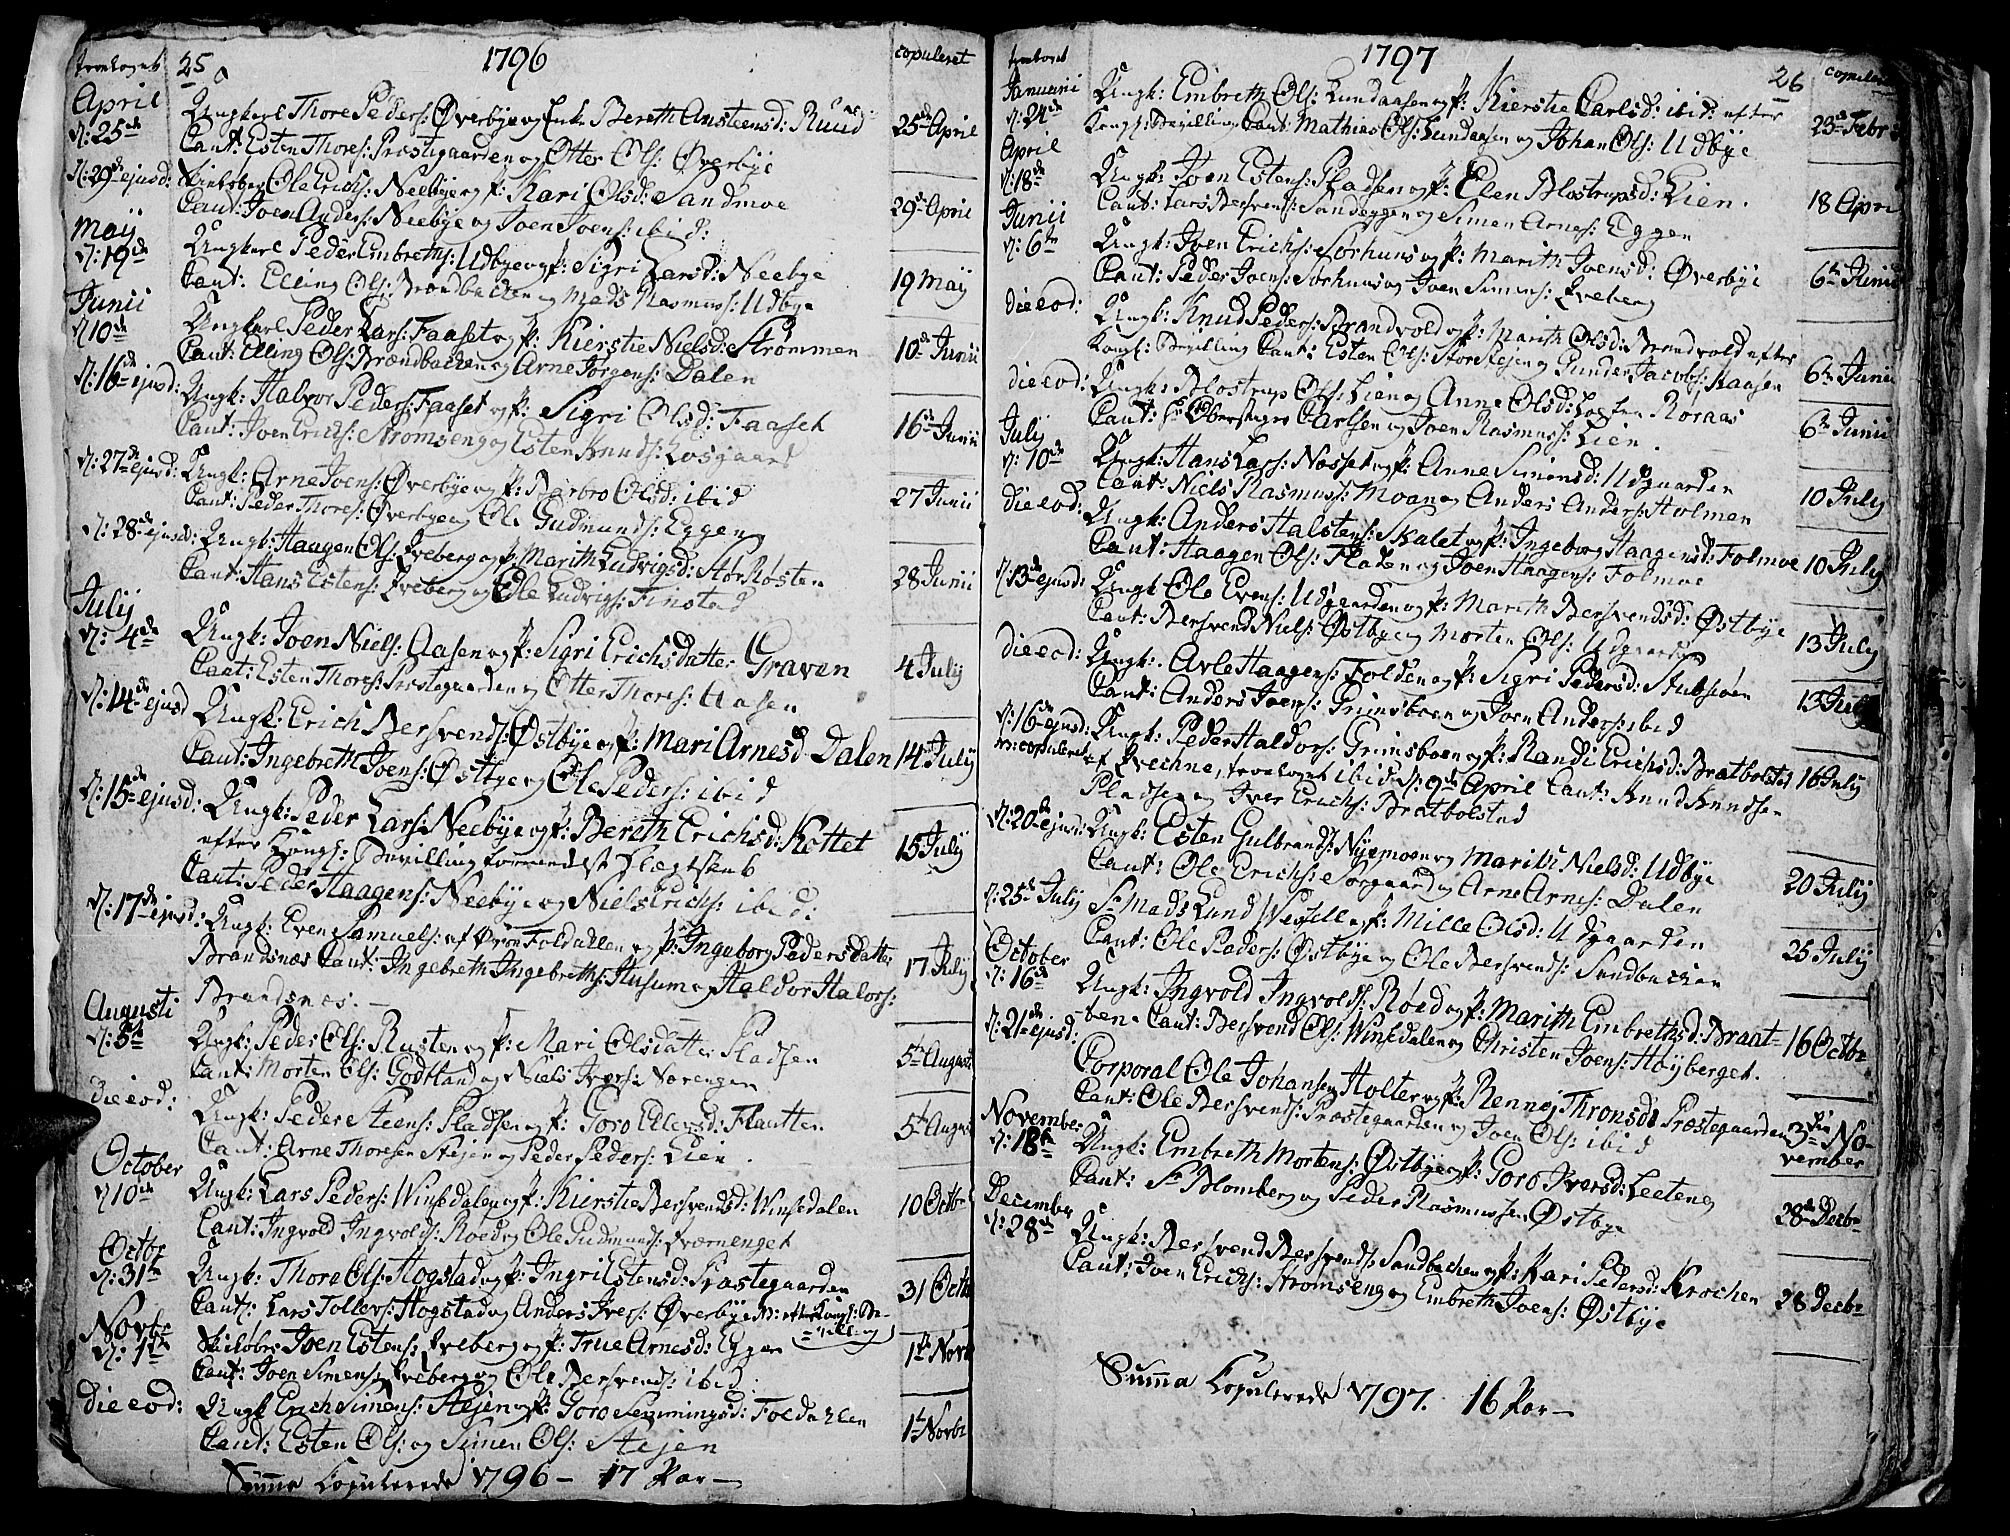 trolovet 25 1796 copuleret
April Ungkarl Thore Peders: Øverbye og Enk: Bereth Amsteensd: Ruud
d: 25de Caut: Esten Thores: Præstegaarden og Otter Ols: Øverbye 25de April
d: 29de ejusd: Ole Erichs: Neebye og P: Kari Olsd: Sandmoe
Caut: Joen Anders: Neebye og Joen Joens: ibid: 29de April
Maij Ungkarl Peder Embreths: Udbye og P: Sigri Larsd: Neebye
d: 19de Caut: Elling Ols: Brændbacken og Mads Rasmus: Udbye 19 Maij
Junii Ungkarl Peder Lars: Faaset og P: Kierstie Nielsd: Strømmen
d 10de Caut: Elling Ols: Brændbacken og Arne Jørgens: Dalen 10de Junii
d: 16de ejusd: Ungk: Halvor Peders: Faaset og P: Sigri Olsd: Faaset
Caut: Joen Erichs: Strømseng og Esten Knuds: Losgaard 16de Junii
d: 27de ejusd: Ungk: Arne Joens: Øverbye og P: Barbro Olsd: ibid
Caut: Peder Thores: Øverbye og Ole Gudmunds: Eggen 27 Junii
d: 28de ejusd: Ungk: Haagen Ols: Kveberg og P: Marith Ludvigsd: StorRøsten
Caut: Hans Estens: Kveberg og Ole Ludvigs: Finstad 28 Junii
Julij
d: 4de Ungk: Joen Niels: Aasen og P: Sigri Erichsdatter Graven
Caut: Esten Thores: Præstegaarden og Otter Thores: Aasen 4 Julij
d: 14de ejusd Ungk: Erich Bersvends: Østbye og P: Mari Arnesd Dalen
Caut: Ingebreth Joens: Østbye og Ole Peders: ibid 14de Julij
d: 15de ejusd: Ungk: Peder Lars: Neebye og P: Bereth Erichsd: Kottet
efter Kongl: Bevilling formedelst Slegtskab 15 Julij
Caut: Peder Haagens: Neebye og Niels Erichs: ibid:
d: 17de ejusd: Ungk: Even Samuels: af Foldahlen og P: Ingeborg Pedersdatter
Brandsnæs Caut: Ingebreth Ingebreths: Husum og Haldor Halvors: 17 Julij
Brandsnæs.
Augusti
d: 5te Ungk: Peder Ols: Rusten og P: Mari Olsdatter Pladsen
Caut: Morten Ols: Godtland og Niels Ivers: Norengen 5te August
die eod: Ungk: Peder Steens: Pladsen og P: Goro Ellevsd: Flautten
Caut: Arne Thoresen Steien og Peder Peders: Lien. 5te August
October
d 10de Ungk: Lars Peders: Winsedalen og P: Kierstie Bersvendsd: Winsedalen
Caut: Ingvold Ingvolds: Røed og Ole Gudmunds: Kværnenget 10 Octbr
Octbr
d: 31te Ungk: Thore Ols: Hogstad og P: Ingri Estensd: Præstegaarden
Caut: Lars Tollevs: Hogstad og Anders Ivers: Øverbye NB: efter Kongl: Be- 31 Octbr
=villing
Novbr Joen Estens: Kveberg og P: True Arnesd: Eggen
d: 1te Caut: Joen Simens: Kveberg og Ole Bersvends: ibid: 1te Novbr
die eod: Ungk: Erich Simens: Steien og P: Goro Semmingsd: Foldahlen
Caut: Esten Ols: og Simen Ols: Steien 1te Novbr
Suma Copulerede 1796 — 17 Par —
1797 26 copuleret
Januarii Ungk: Embreth Ols: Lundaasen og P: Kierstie Carlsd: ibid: efter
d: 24de Kongl: Bevilling Caut: Mathias Ols: Lundaasen og Johan Ols: Udbye 23de Febr
April
d: 18de Ungk: Joen Estens: Pladsen og P: Elen Blostrupsd: Lien.
Caut: Lars Bersvends: Sandeggen og Simen Arnes: Eggen 18 April
Junii
d: 6te Ungk: Joen Erichs: Sørhuus og P: Marith Joensd: Øverbye
Caut: Peder Joens: Sørhuus og Joen Simens: Kveberg 6te Junii
die eod: Ungk: Knud Peders: Brandvold og P: Marith Olsd: Brandvold efter
Kongl: Bevilling Caut: Esten Ols: StorSteien og Gunder Jacobs: Kaasen 6te Junii
die eod: Ungk: Blostrup Ols: Lien og Anne Olsd: Røraas
Caut: Hr Oberstager Carlsen og Joen Rasmus: Lien 6te Junii
July
d: 10de Ungk: Hans Lars: Nosset og P: Anne Simensd: Udgaarden
Caut: Niels Rasmus: Moan og Anders Anders: Holmen 10 Julij
die eod: Ungk: Anders Halstens: Skalet og P: Ingeborg Haagensd: Folmoe
Caut: Haagen Ols: Fladen og Joen Haagens: Folmoe 10 Julij
d: 13de ejusd: Ungk: Ole Evens: Udgaarden og P: Marith Bersvendsd: Østbye
Caut: Bersvend Niels: Østbye og Morten Ols: Udgaarden 13 Julij
die eod: Ungk: Avle Haagens: Folden og P: Sigri Pedersd: Stubsiøen
Caut: Anders Joens: Grimsboen og Joen Anders: ibid 13 Julij
d: 16de ejusd: Ungk: Peder Haldors: Grimsboen og P: Randi Erichsd: Bratbolstad 16 Julij
copuleret af Kvickne, trolovet ibid d: 9de April Caut: Knud Knudsen
Pladsen og Iver Erichs: Bratbolstad
d: 20de ejusd: Ungk: Esten Gulbrands: Nyemoen og Marith Nielsd: Udbye
Caut: Ole Erichs: Sørgaard og Arne Arnes: Dalen 20 Julij
d: 25de Julij Sr Mads Lund Wessell og P: Mille Olsd: Udgaarden
Caut: Ole Peders: Østbye og Ole Bersvends: Sandbacken 25 Julij
October
d: 16de Ungk: Ingvold Ingvolds: Røed og P: Marith Embrethsd: Braat=
ten. Caut: Bersvend Ols: Winsedalen og Christen Joens: Høyberget. 16 Octbr
d: 21de ejusd: Corporal Ole Johansen Holter og P: Rennoj Thronsd: Præstegaarden 3die No-
Caut: Ole Bersvends: Præstegaarden og Joen Ols: ibid vember
November
d: 18de Ungk: Embreth Mortens: Østbye og P: Goro Iversd: Leeteng
Caut: Sr Blomberg og Peder Rasmussen Østbye 28de Decbr
December
d: 28de Ungk: Bersvend Bersvends: Sandbacken og P: Kari Pedersd: Krochen
Caut: Joen Erichs: Strømseng og Embreth Joens: Østbye 28 Decbr
Suma Copulerede 1797. 16 Par —